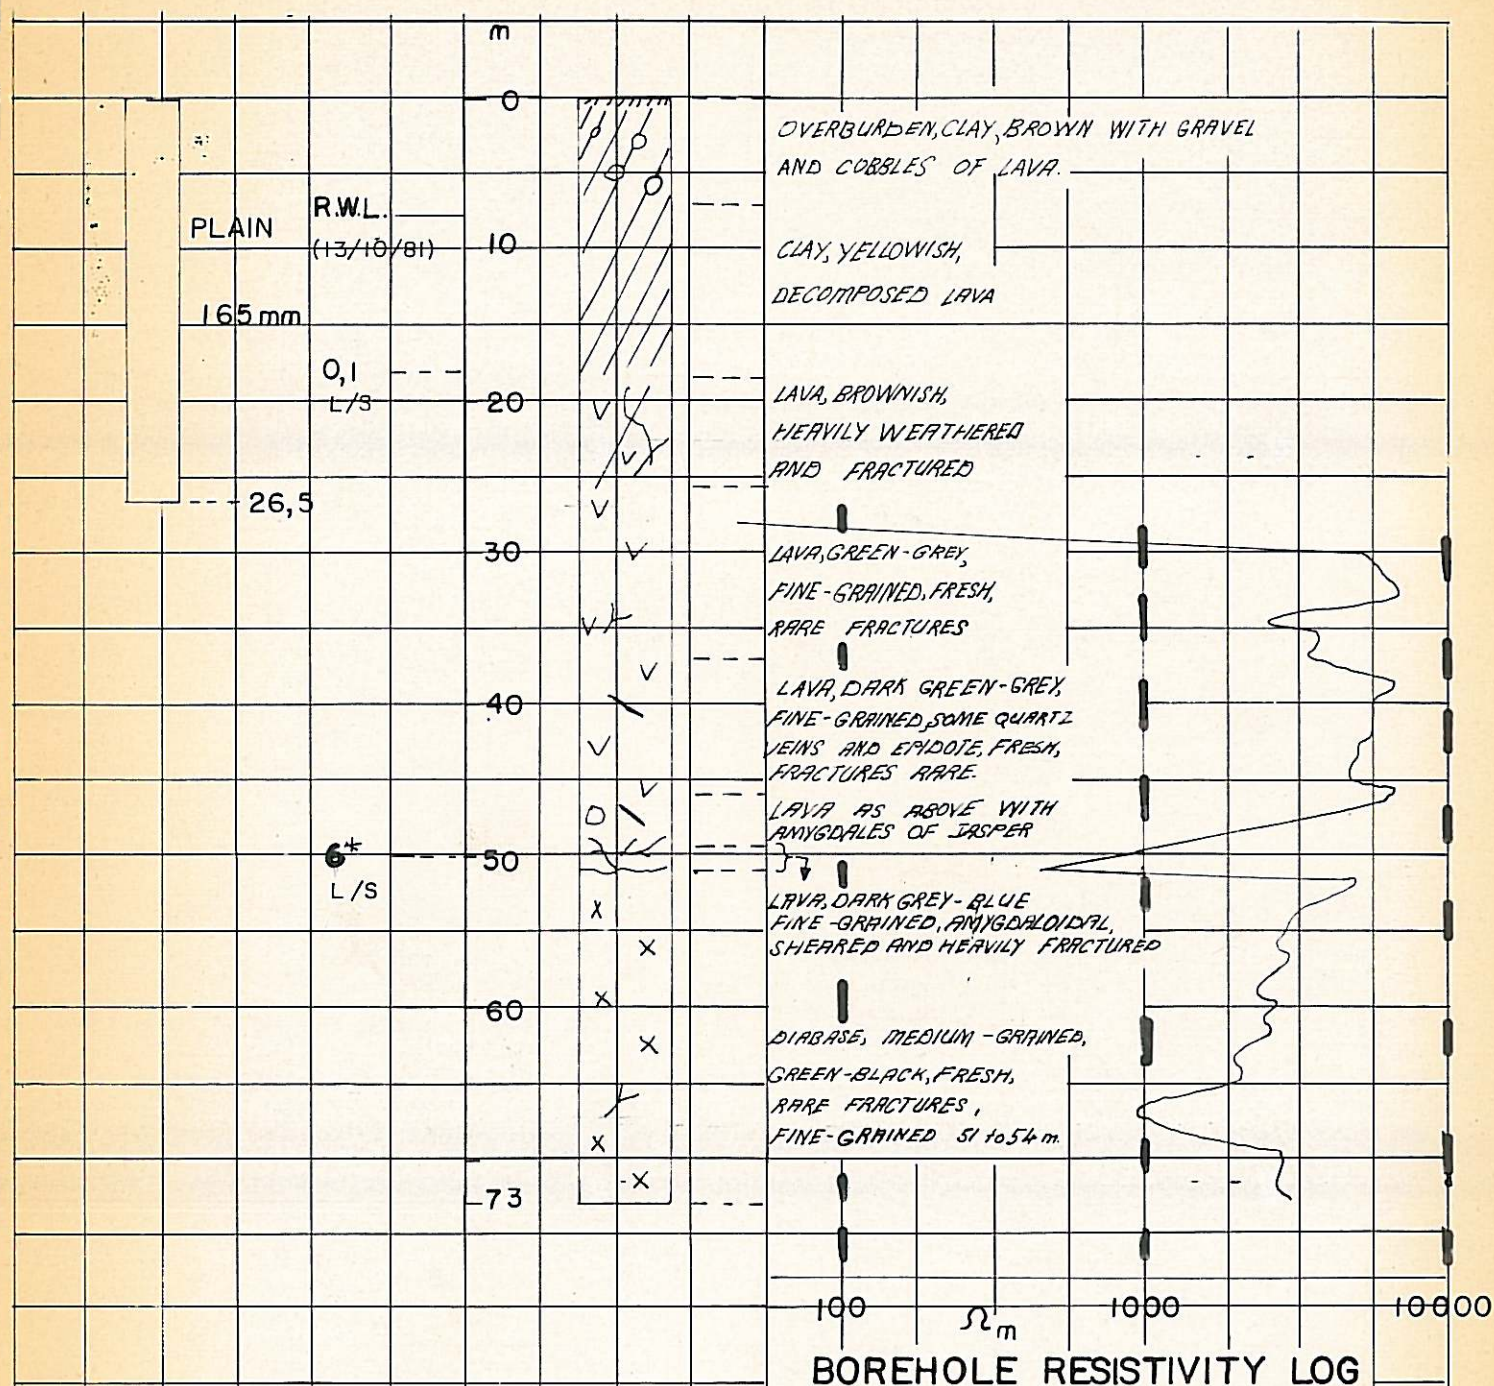 m
0
OVERBURDEN, CLAY, BROWN WITH GRAVEL
AND COBBLES OF LAVA.
R.W.L.
(13/10/81)
PLAIN
165 mm
10
CLAY, YELLOWISH,
DECOMPOSED LAVA
0,1
L/S
20
LAVA, BROWNISH,
HEAVILY WEATHERED
AND FRACTURED
26,5
30
LAVA, GREEN-GREY,
FINE-GRAINED, FRESH,
RARE FRACTURES
40
LAVA, DARK GREEN-GREY,
FINE-GRAINED, SOME QUARTZ
VEINS AND EPIDOTE, FRESH,
FRACTURES RARE.
LAVA AS ABOVE WITH
AMYGDALES OF JASPER
6*
L/S
50
LAVA, DARK GREY-BLUE
FINE-GRAINED, AMYGDALOIDAL,
SHEARED AND HEAVILY FRACTURED
60
DIABASE, MEDIUM-GRAINED,
GREEN-BLACK, FRESH,
RARE FRACTURES,
FINE-GRAINED 51 to 54 m.
73
100 1000 10000
Ωm
BOREHOLE RESISTIVITY LOG